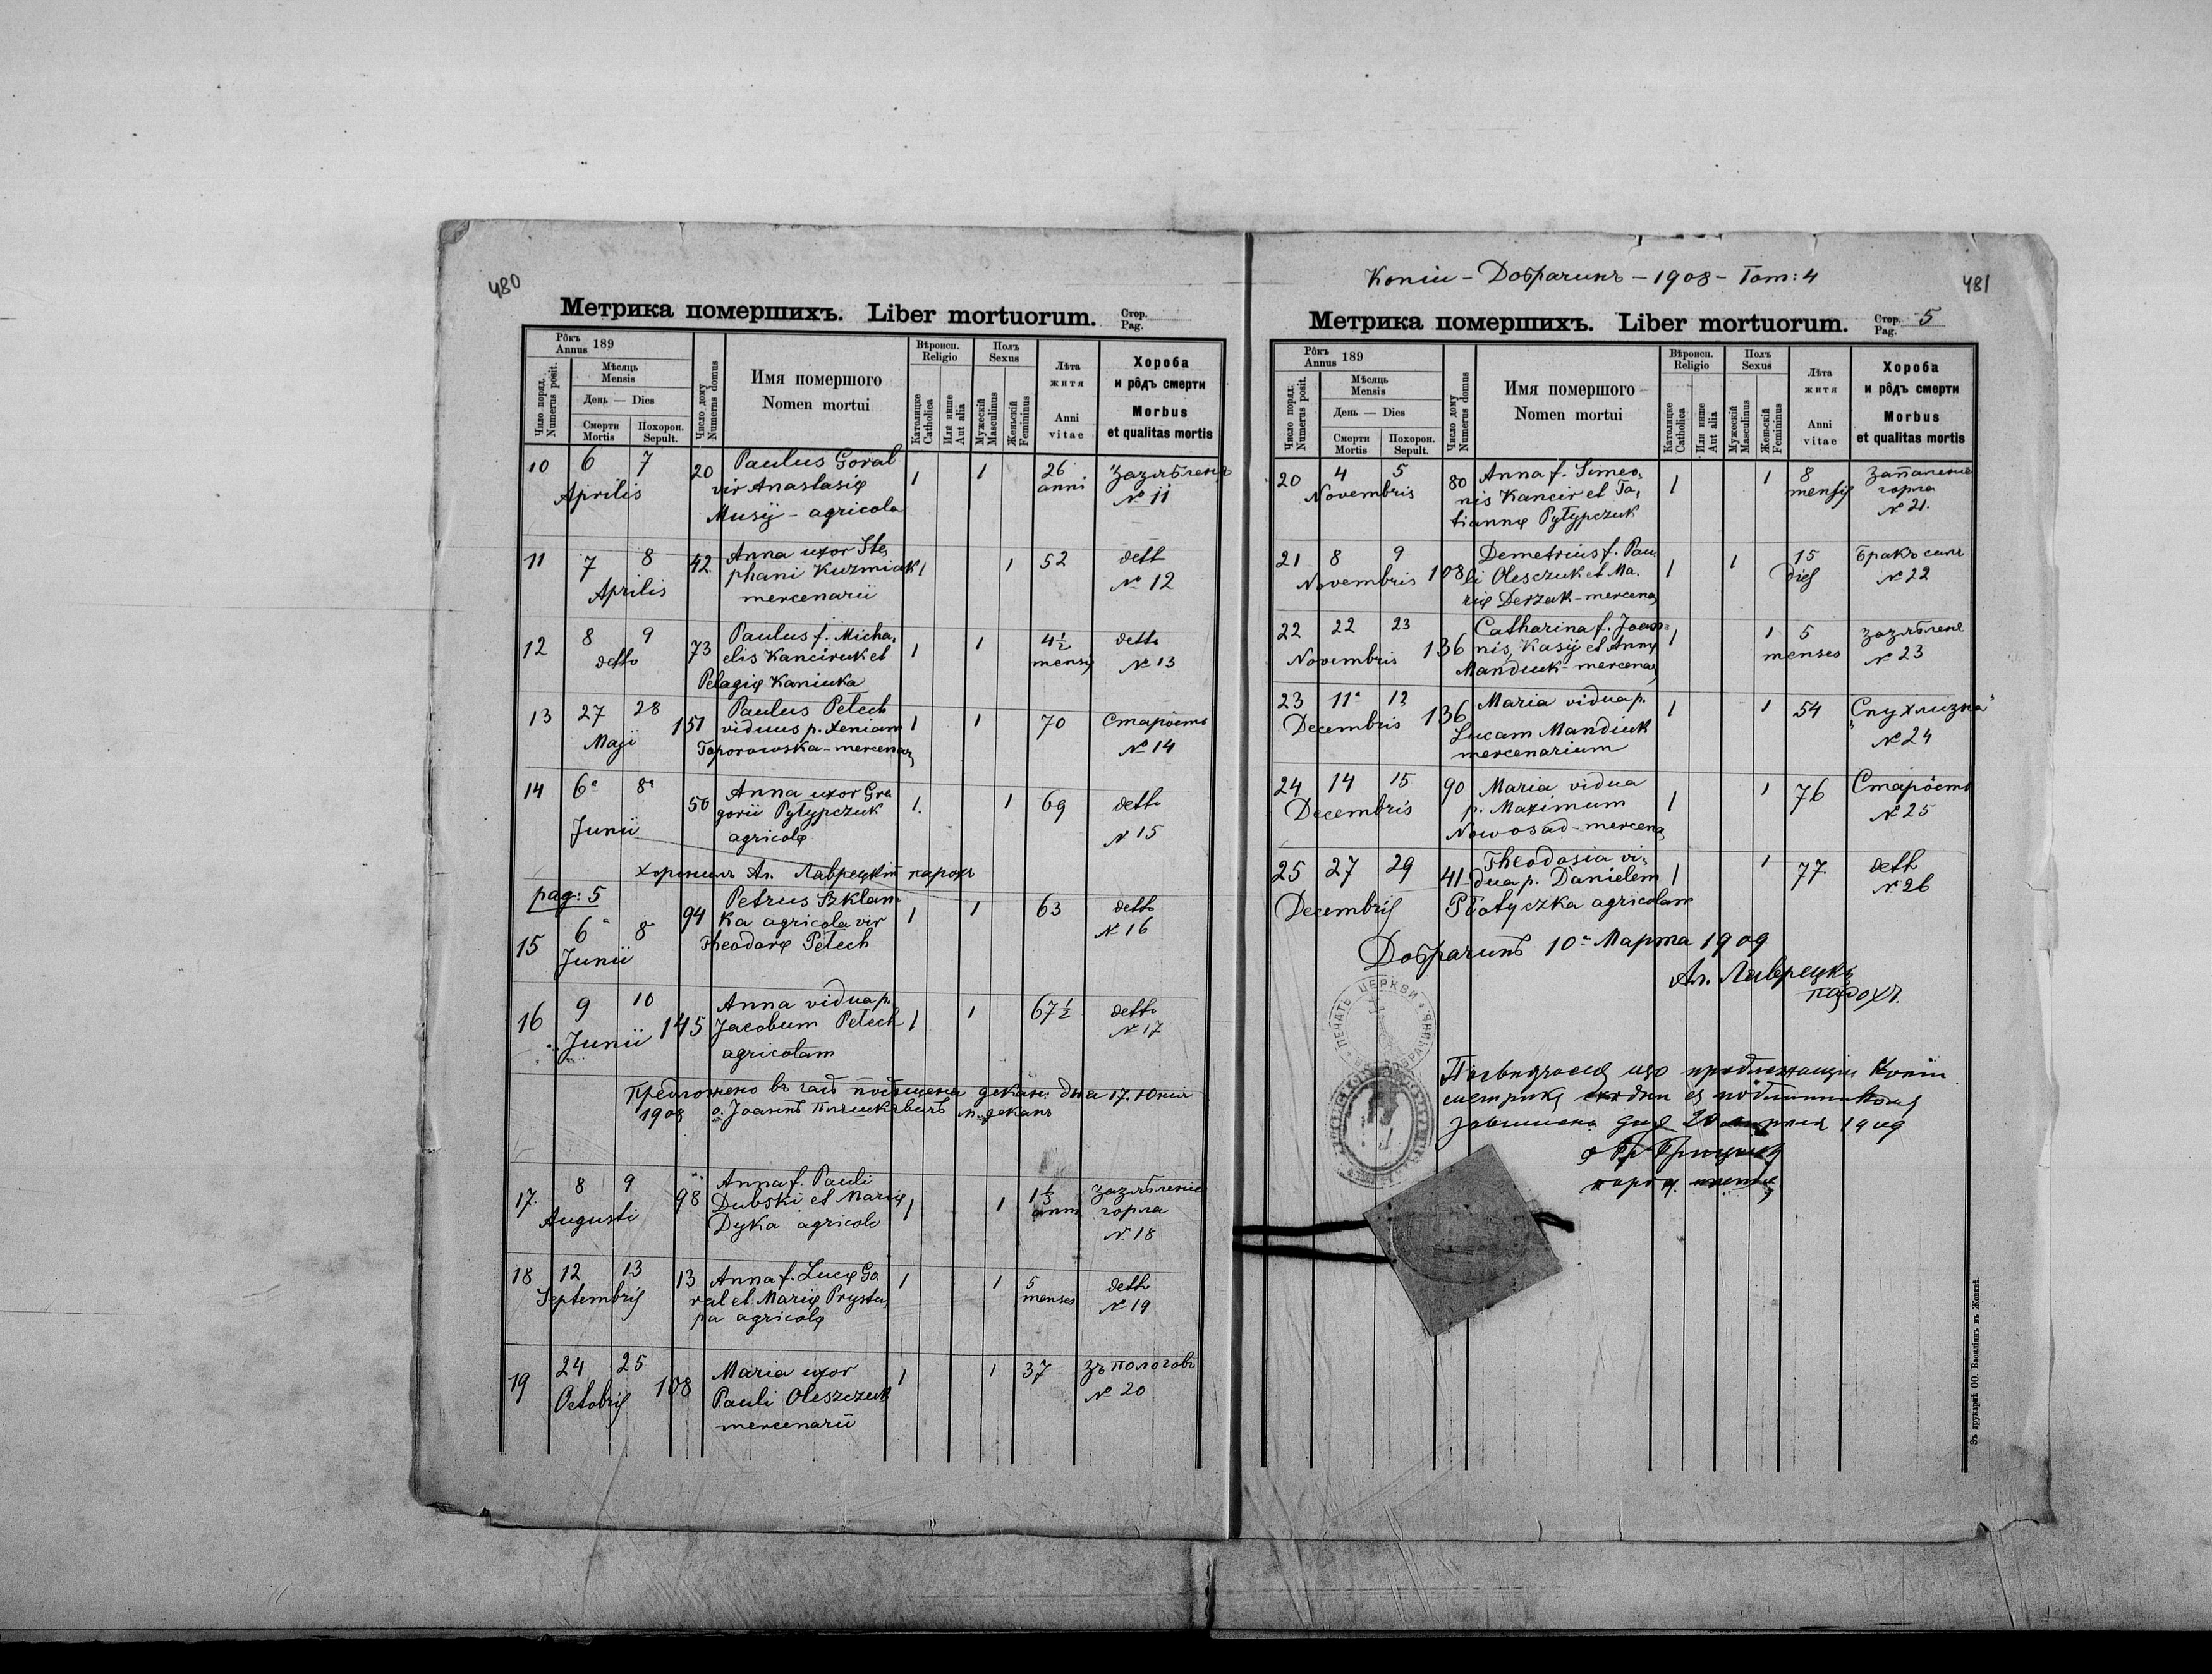 480
Метрика помершихъ. Liber mortuorum.
Стор.
Pag.
Рôкъ
Annus 189
Мѣсяць
Mensis
День — Dies
Число поряд.
Numerus posit.
Смерти
Mortis
Похорон.
Sepult.
Число дому
Numerus domus
Имя помершого
Nomen mortui
Вѣроисп.
Religio
Католицке
Catholica
Или инше
Aut alia
Полъ
Sexus
Мужескій
Masculinus
Женьскій
Femininus
Лѣта
житя
Anni
vitae
Хороба
и рôдъ смерти
Morbus
et qualitas mortis
10 6 7 20 Paulus Goral 1 1 26
Aprilis vir Anastasię anni
Musij - agricola № 11
11 7 8 42 Anna uxor Ste, 1 1 52 detto
Aprilis phani Kuzmiak № 12
mercenarii
12 8 9 73 Paulus f. Micha, 1 1 4½ detto
detto elis Kanciruk et mensis № 13
Pelagię Kaniuka
13 27 28 151 Paulus Petech 1 1 70 Старôсть
Maji viduus p. Xeniam № 14
Toporowska - mercenar,
14 6ª 8ª 50 Anna uxor Gre 1. 1 69 detto
Junii gorii Pytypczuk № 15
agricolę
хоронилъ Ал. Лаврецкій парохъ
pag: 5
15 6ª 8ª 94 Petrus Szklan- 1 1 63 detto
Junii ka agricola vir № 16
Theodorę Petech
16 9 10 145 Anna vidua p. 1 1 67½ detto
Junii Jacobum Petech № 17
agricolam
Предложено въ часѣ декан. дня 17. Юнія
1908 о. Іоаннъ деканъ
17. 8 9 98 Anna f. Pauli 1 1 1⅓
Augusti Dubski et Marię anni горла
Dyka agricolę № 18
18 12 13 13 Anna f. Lucę Go 1 1 5 detto
Septembris ral et Marię Prystu, menses № 19
pa agricolę
19 24 25 108 Maria uxor 1 1 37 зъ пологовъ
Octobris Pauli Oleszczuk № 20
mercenarii
Копіи - Добрачинъ - 1908 - Том: 4
481
Метрика помершихъ. Liber mortuorum.
Стор.
Pag. 5
Рôкъ
Annus 189
Мѣсяць
Mensis
День — Dies
Число поряд.
Numerus posit.
Смерти
Mortis
Похорон.
Sepult.
Число дому
Numerus domus
Имя помершого
Nomen mortui
Вѣроисп.
Religio
Католицке
Catholica
Или инше
Aut alia
Полъ
Sexus
Мужескій
Masculinus
Женьскій
Femininus
Лѣта
житя
Anni
vitae
Хороба
и рôдъ смерти
Morbus
et qualitas mortis
20 4 5 80 Anna f. Simeo, 1 1 8 Запаленіе
Novembris nis Kancir et Ta, mensis горла
tiannę Pytypczuk № 21.
21 8 9 108 Demetrius f. Pau 1 1 15 Бракъ силъ
Novembris li Olesczuk et Ma. dies № 22
rię Derzak - mercena,
22 22 23 136 Catharina f. Joan= 1 1 5
Novembris nis Kasij et Annę menses № 23
Mandiuk - mercenar,
23 11ª 12 136 Maria vidua p. 1 1 54 „Спухлизна“
Decembris Lucam Mandiuk № 24
mercenarium
24 14 15 90 Maria vidua 1 1 76 Старôсть
Decembris p. Maximum № 25
Nowosad - mercena,
25 27 29 41 Theodosia vi, 1 1 77. detto
Decembris dua p. Danielem № 26
Płotyczka agricolam
Добрачинъ 10ª Марта 1909
Ал. Лаврецкій
парохъ.
ПЕЧАТЬ ЦЕРКВИ
що предлежащіи копіи
метрики
дня 20 1909
Зъ друкарнѣ ОО. Василіянъ въ Жовквѣ.